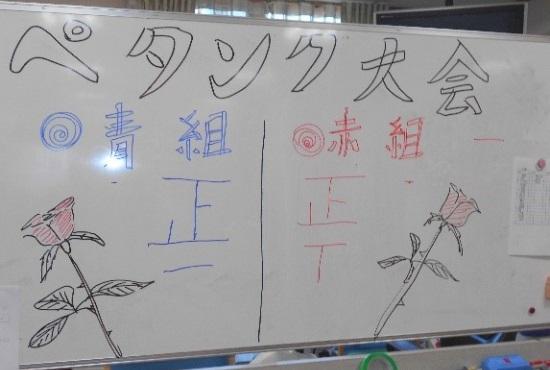 ペタンク大会
青組
正
一
赤組 一
正
丅